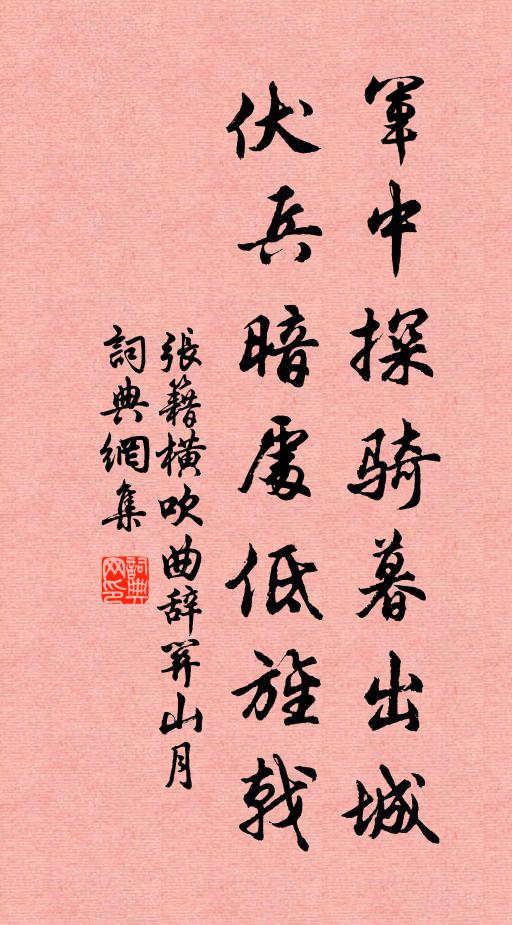 軍中探騎暮出城
伏兵暗處低旌戟
張籍橫吹曲辞關山月
詞典網集
詞典网印